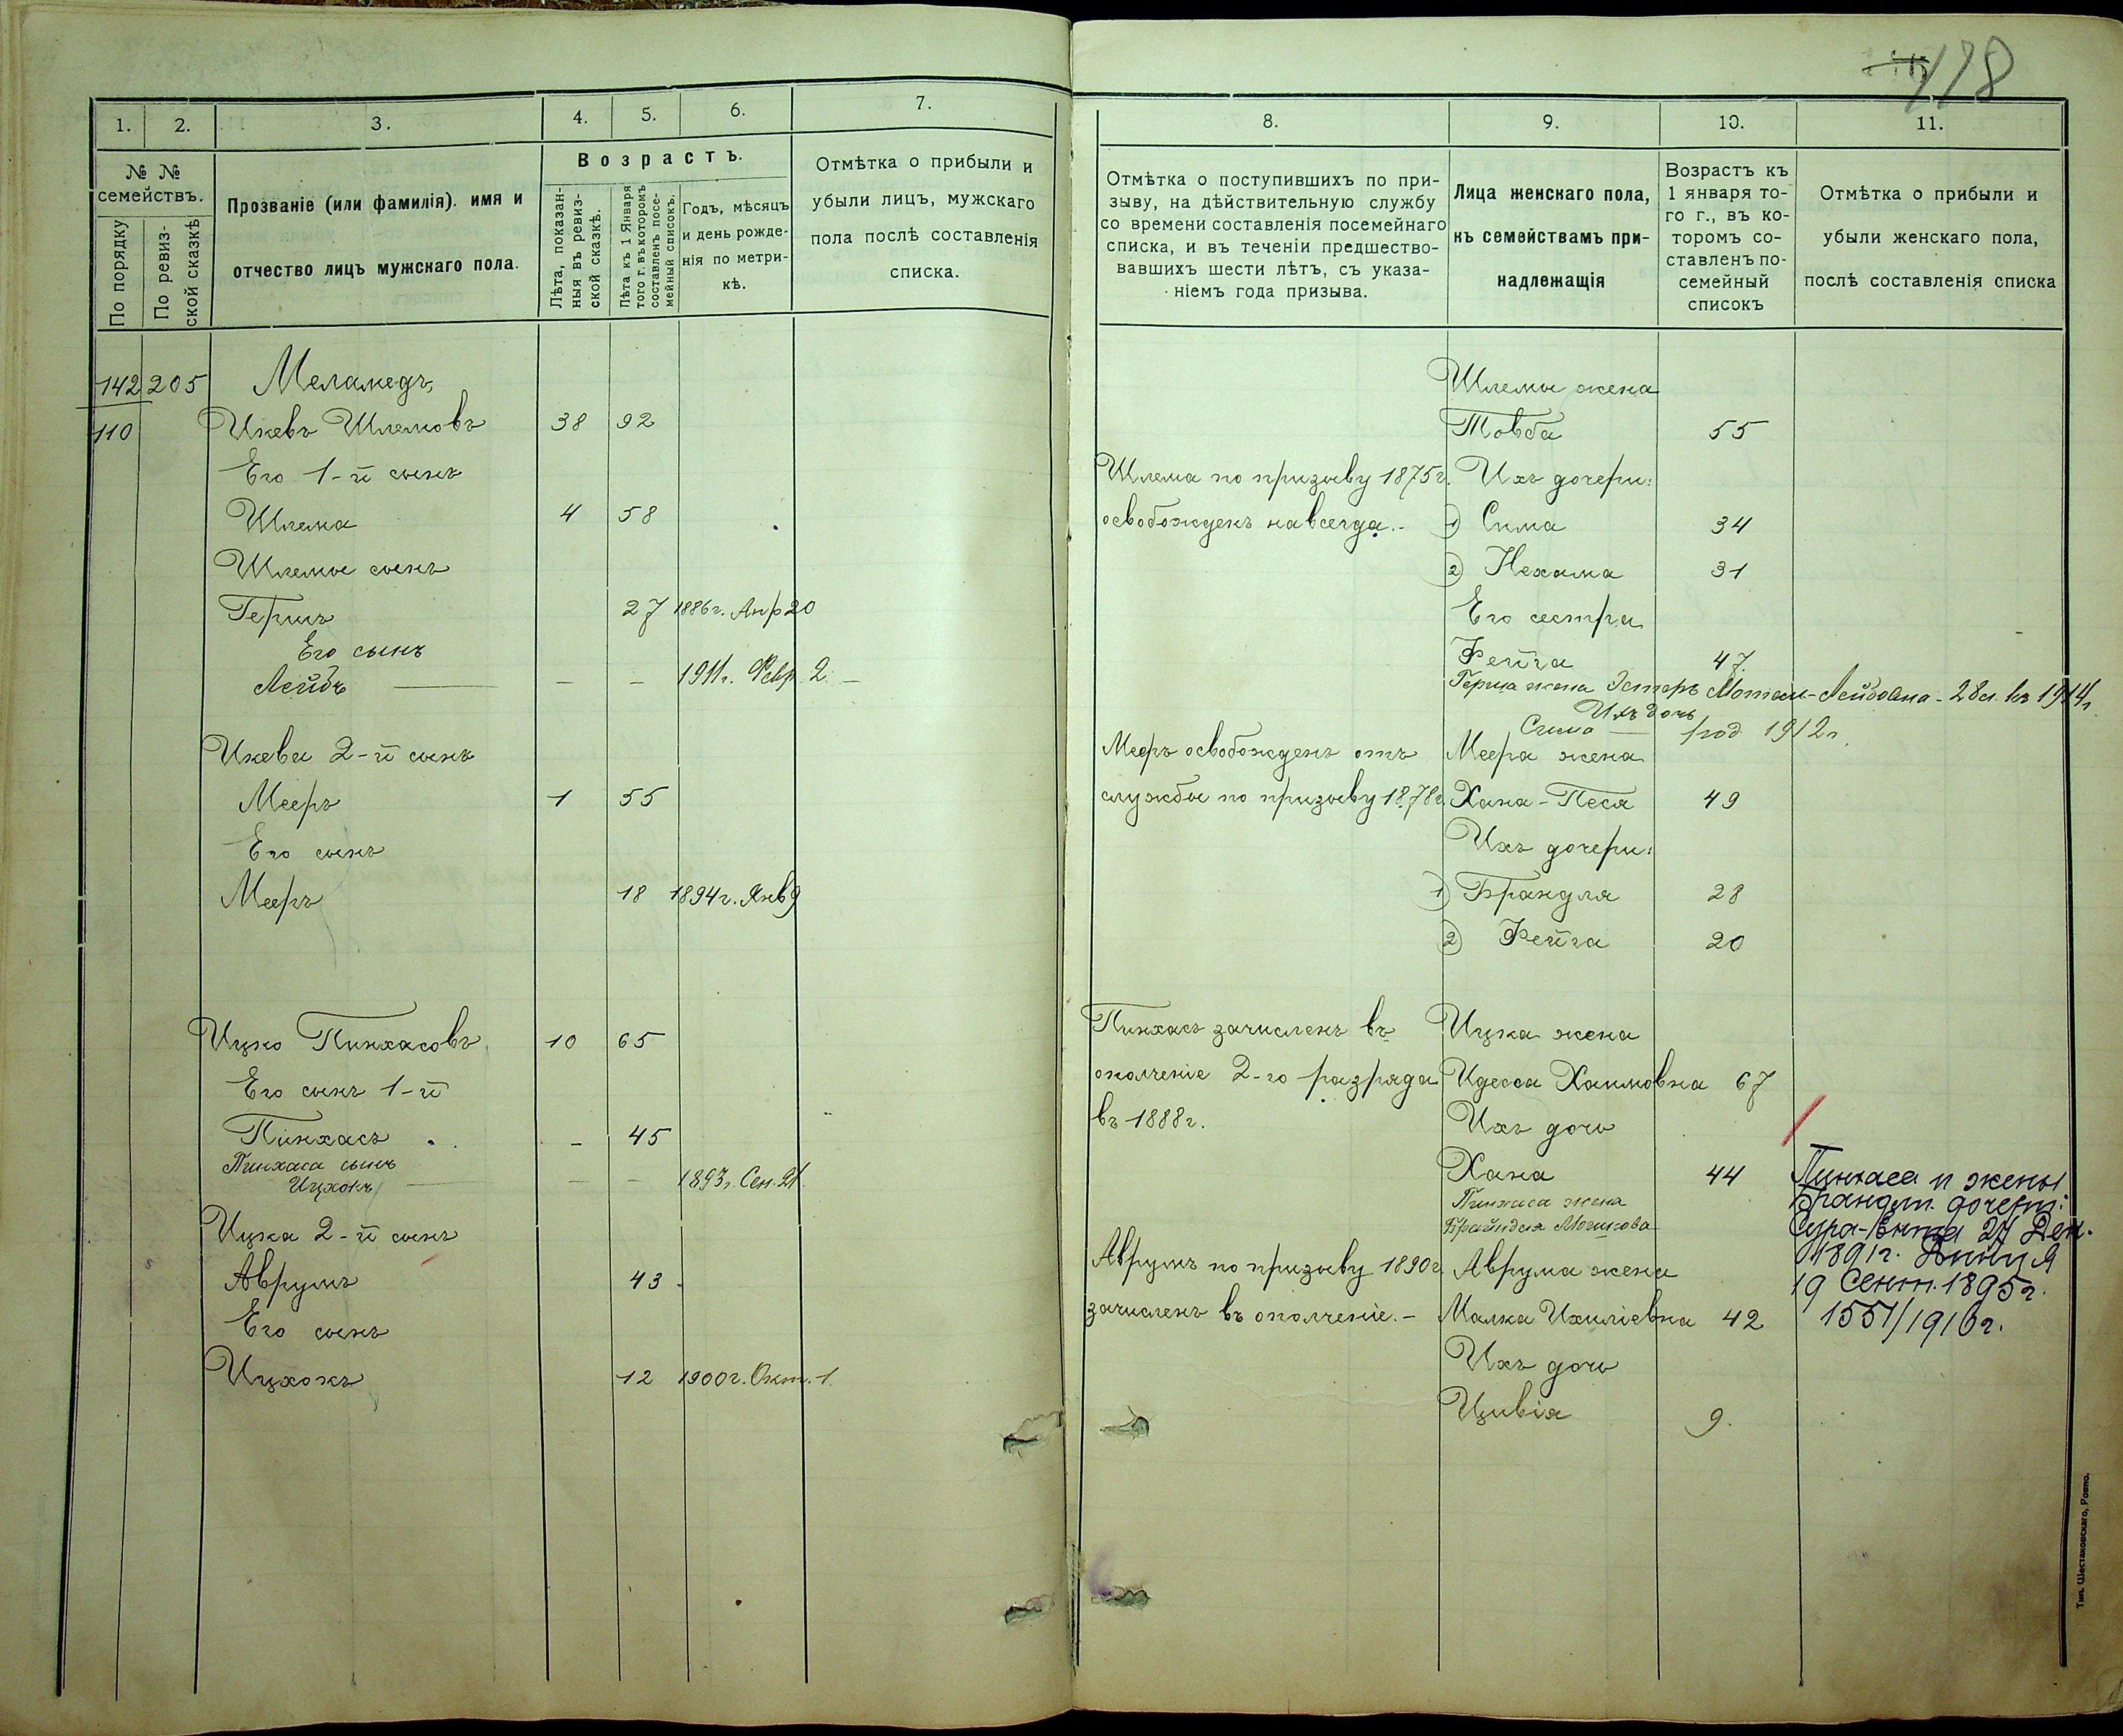 178
1.
2.
3.
4.
5.
6.
7.
№ №
семействъ.
По порядку
По ревиз-
ской сказкѣ
Прозваніе (или фамилія). имя и
отчество лицъ мужскаго пола.
Возрастъ.
Лѣта, показан-
ныя въ ревиз-
ской сказкѣ.
Лѣта къ 1 Января
того г. въ которомъ
составленъ посе-
мейный списокъ.
Годъ, мѣсяцъ
и день рожде-
нія по метри-
кѣ.
Отмѣтка о прибыли и
убыли лицъ, мужскаго
пола послѣ составленія
списка.
142 205 Меламедъ,
110 Икевъ Шлемовъ 38 92
Его 1-й сынъ
Шлема 4 58
Шлемы сынъ
Гершъ 27 1886г. Апр 20
Его сынъ
Лейбъ — — — 1911г. Февр. 2. —
Икева 2-й сынъ
Мееръ 1 55
Его сынъ
Мееръ 18 1894г. Янв 9
Ицко Пинхасовъ 10 65
Его сынъ 1-й
Пинхасъ - 45
Пинхаса сынъ
Ицхокъ — — — 1893г. Сен. 21.
Ицка 2-й сынъ
Аврумъ 43
Его сынъ
Ицхокъ 12 1900г. Окт. 1
8.
9.
10.
11.
Отмѣтка о поступившихъ по при-
зыву, на дѣйствительную службу
со времени составленія посемейнаго
списка, и въ теченіи предшество-
вавшихъ шести лѣтъ, съ указа-
ніемъ года призыва.
Лица женскаго пола,
къ семействамъ при-
надлежащія
Возрастъ къ
1 января то-
го г., въ ко-
торомъ со-
ставленъ по-
семейный
списокъ
Отмѣтка о прибыли и
убыли женскаго пола,
послѣ составленія списка
Шлемы жена
Товба 55
Шлема по призыву 1875г. Ихъ дочери:
освобожденъ навсегда.- 1) Сима 34
2) Нехама 31
Его сестра
Фейга 47.
Герша жена Эстеръ Мотель-Лейбовна - 28 л. въ 1914г.
Ихъ дочь
Сима — род 1912г.
Мееръ освобожденъ отъ Меера жена
службы по призыву 1878г. Хана-Песя 49
Ихъ дочери:
1) Брандля 28
2) Фейга 20
Пинхасъ зачисленъ въ Ицка жена
ополченіе 2-го разряда Идесса Хаимовна 67
въ 1888г. Ихъ дочь
Хана 44
Пинхаса жена
Брайндля Мошкова
Пинхаса и жены
Брандли дочери:
Сура-Ента 27 Дек.
1891г.
19 Сент. 1895г.
1551/1916г.
Аврумъ по призыву 1890г. Аврума жена
зачисленъ въ ополченіе.- Малка Ихиліевна 42
Ихъ дочь
Цивія 9.
Тип. Шестаковскаго, Ровно.